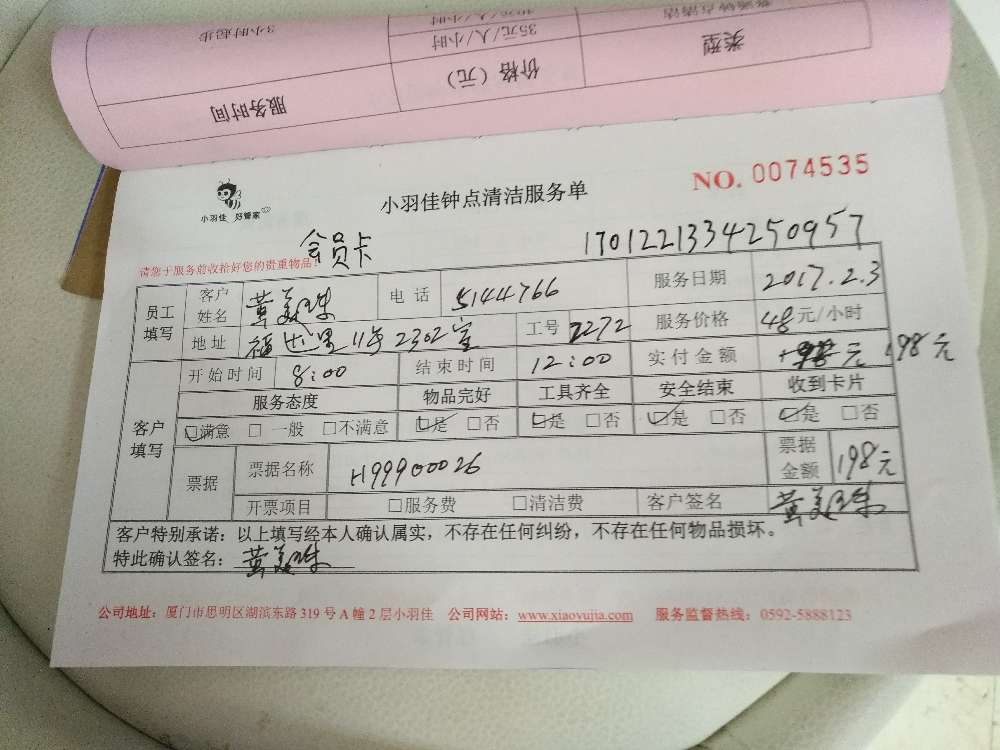 普通钟点清洁
40元/人/小时
35元/人/小时
3小时起步
类型
价格（元）
服务时间
小羽佳 好管家
小羽佳钟点清洁服务单
NO. 0074535
1701221334250957
会员卡
请您于服务前收拾好您的贵重物品！
员工填写 客户姓名 黄美珠 电话 5144766 服务日期 2017.2.3
地址 福 里11号2302室 工号 2272 服务价格 48元/小时
客户填写 开始时间 8:00 结束时间 12:00 实付金额 元 198元
服务态度 物品完好 工具齐全 安全结束 收到卡片
☑满意 □一般 □不满意 ☑是 □否 ☑是 □否 ☑是 □否 ☑是 □否
票据 票据名称 H99900026 票据金额 198元
开票项目 □服务费 □清洁费 客户签名 黄美珠
客户特别承诺：以上填写经本人确认属实，不存在任何纠纷，不存在任何物品损坏。
特此确认签名：黄美珠
公司地址：厦门市思明区湖滨东路319号A幢2层小羽佳 公司网站：www.xiaoyujia.com 服务监督热线：0592-5888123